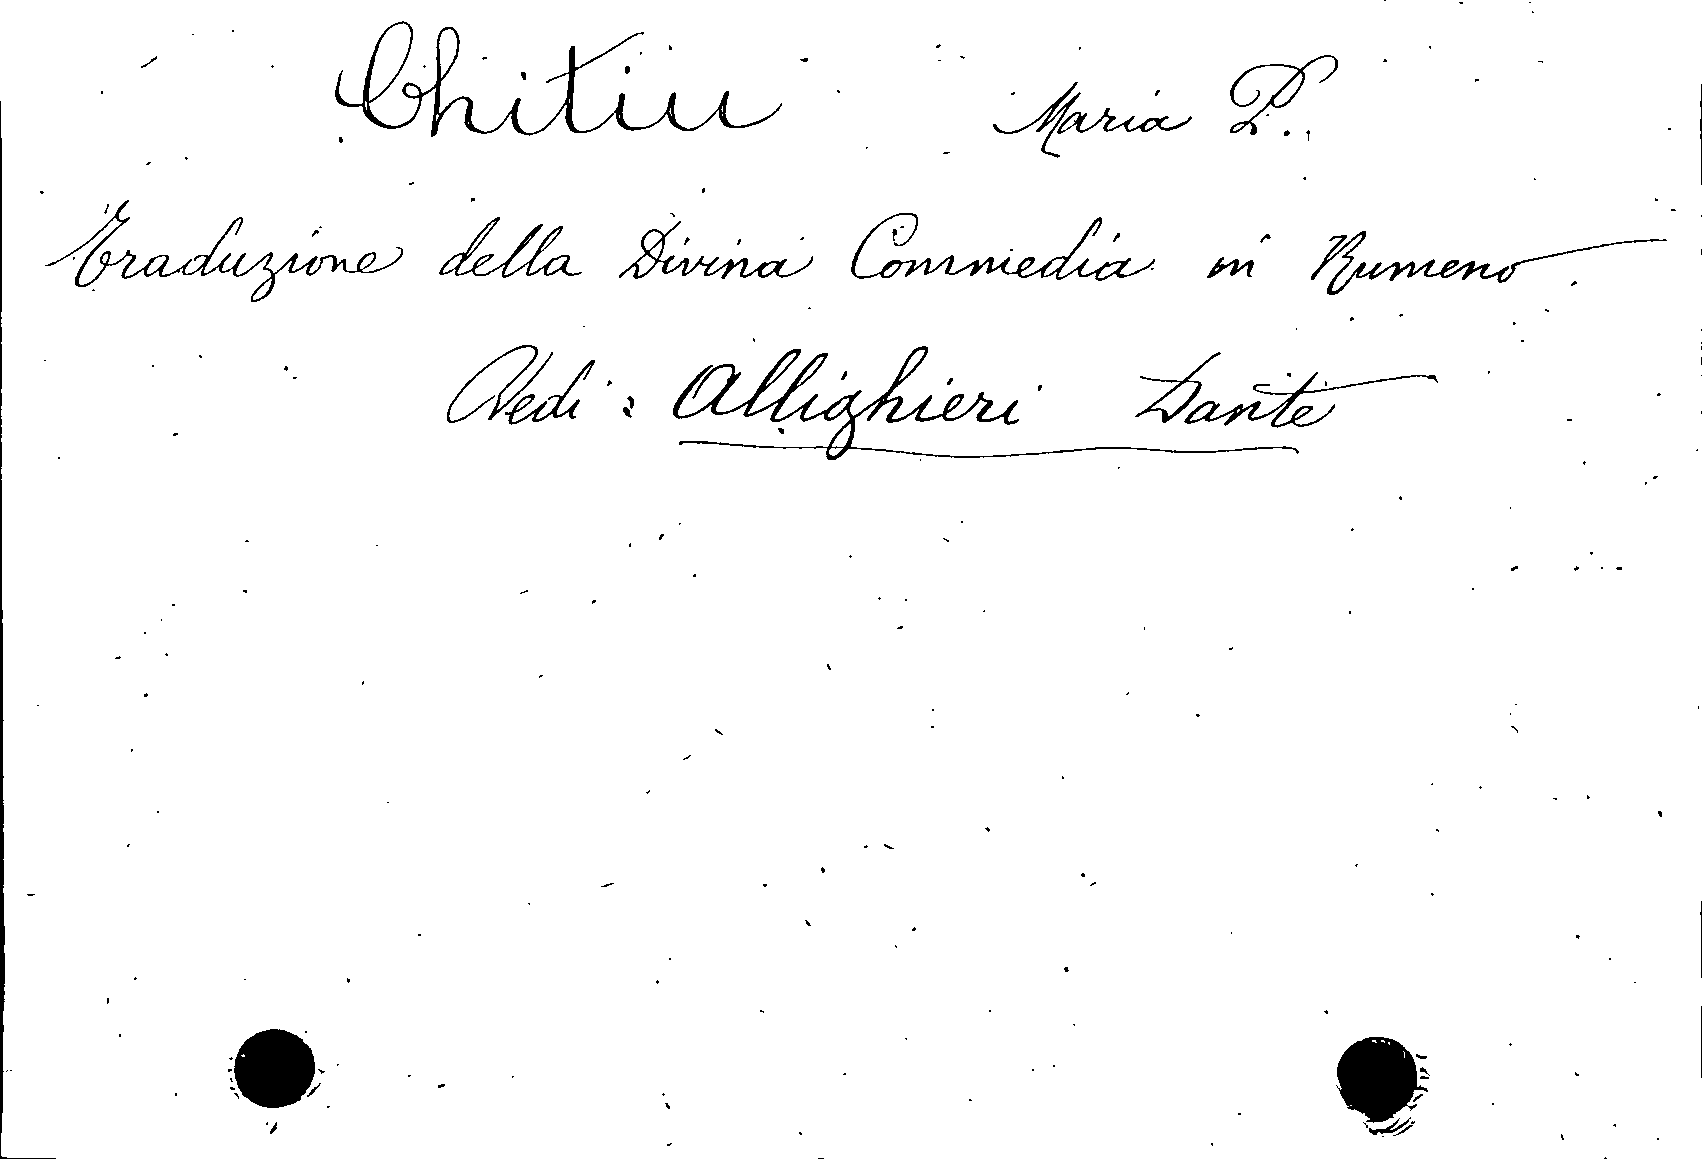 Chitiu Maria P.
Traduzione della Divina Commedia in Rumeno.
Vedi: Allighieri Dante